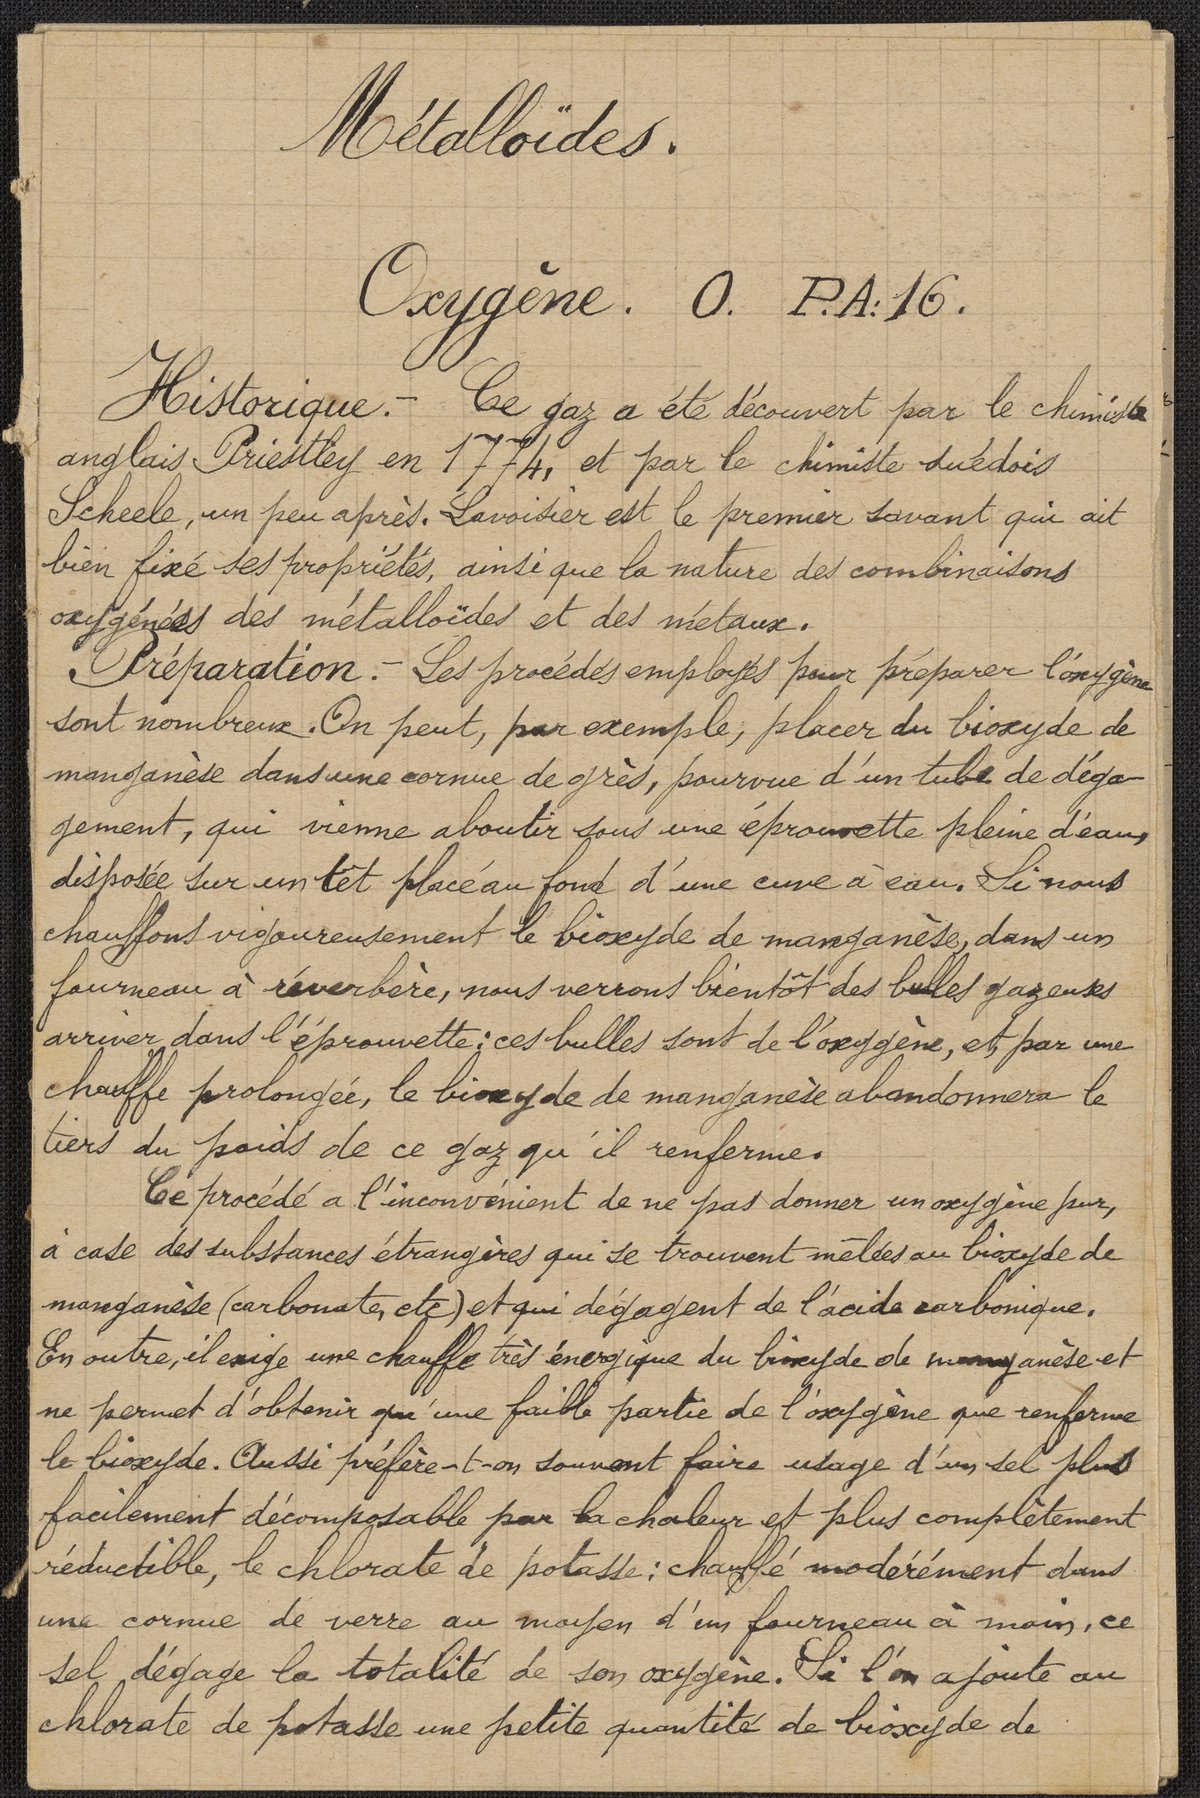 Métalloïdes.
Oxygène. O. P.A: 16.
Historique. - Ce gaz a été découvert par le chimiste
anglais Priestley en 1774, et par le chimiste suédois
Scheele, un peu après. Lavoisier est le premier savant qui ait
bien fixé ses propriétés, ainsi que la nature des combinaisons
oxygénées des métalloïdes et des métaux.
Préparation. - Les procédés employés pour préparer l'oxygène
sont nombreux. On peut, par exemple, placer du bioxyde de
manganèse dans une cornue de grès, pourvue d'un tube de déga-
gement, qui vienne aboutir sous une éprouvette pleine d'eau,
disposée sur un têt placé au fond d'une cuve à eau. Si nous
chauffons vigoureusement le bioxyde de manganèse, dans un
fourneau à réverbère, nous verrons bientôt des bulles gazeuses
arriver dans l'éprouvette; ces bulles sont de l'oxygène, et, par une
chauffe prolongée, le bioxyde de manganèse abandonnera le
tiers du poids de ce gaz qu'il renferme.
Ce procédé a l'inconvénient de ne pas donner un oxygène pur,
à case des substances étrangères qui se trouvent mêlées au bioxyde de
manganèse (carbonate, etc) et qui dégagent de l'acide carbonique.
En outre, il exige une chauffe très énergique du bioxyde de manganèse et
ne permet d'obtenir qu'une faible partie de l'oxygène que renferme
le bioxyde. Aussi préfère-t-on souvent faire usage d'un sel plus
facilement décomposable par la chaleur et plus complètement
réductible, le chlorate de potasse: chauffé modérément dans
une cornue de verre au moyen d'un fourneau à main, ce
sel dégage la totalité de son oxygène. Si l'on ajoute au
chlorate de potasse une petite quantité de bioxyde de